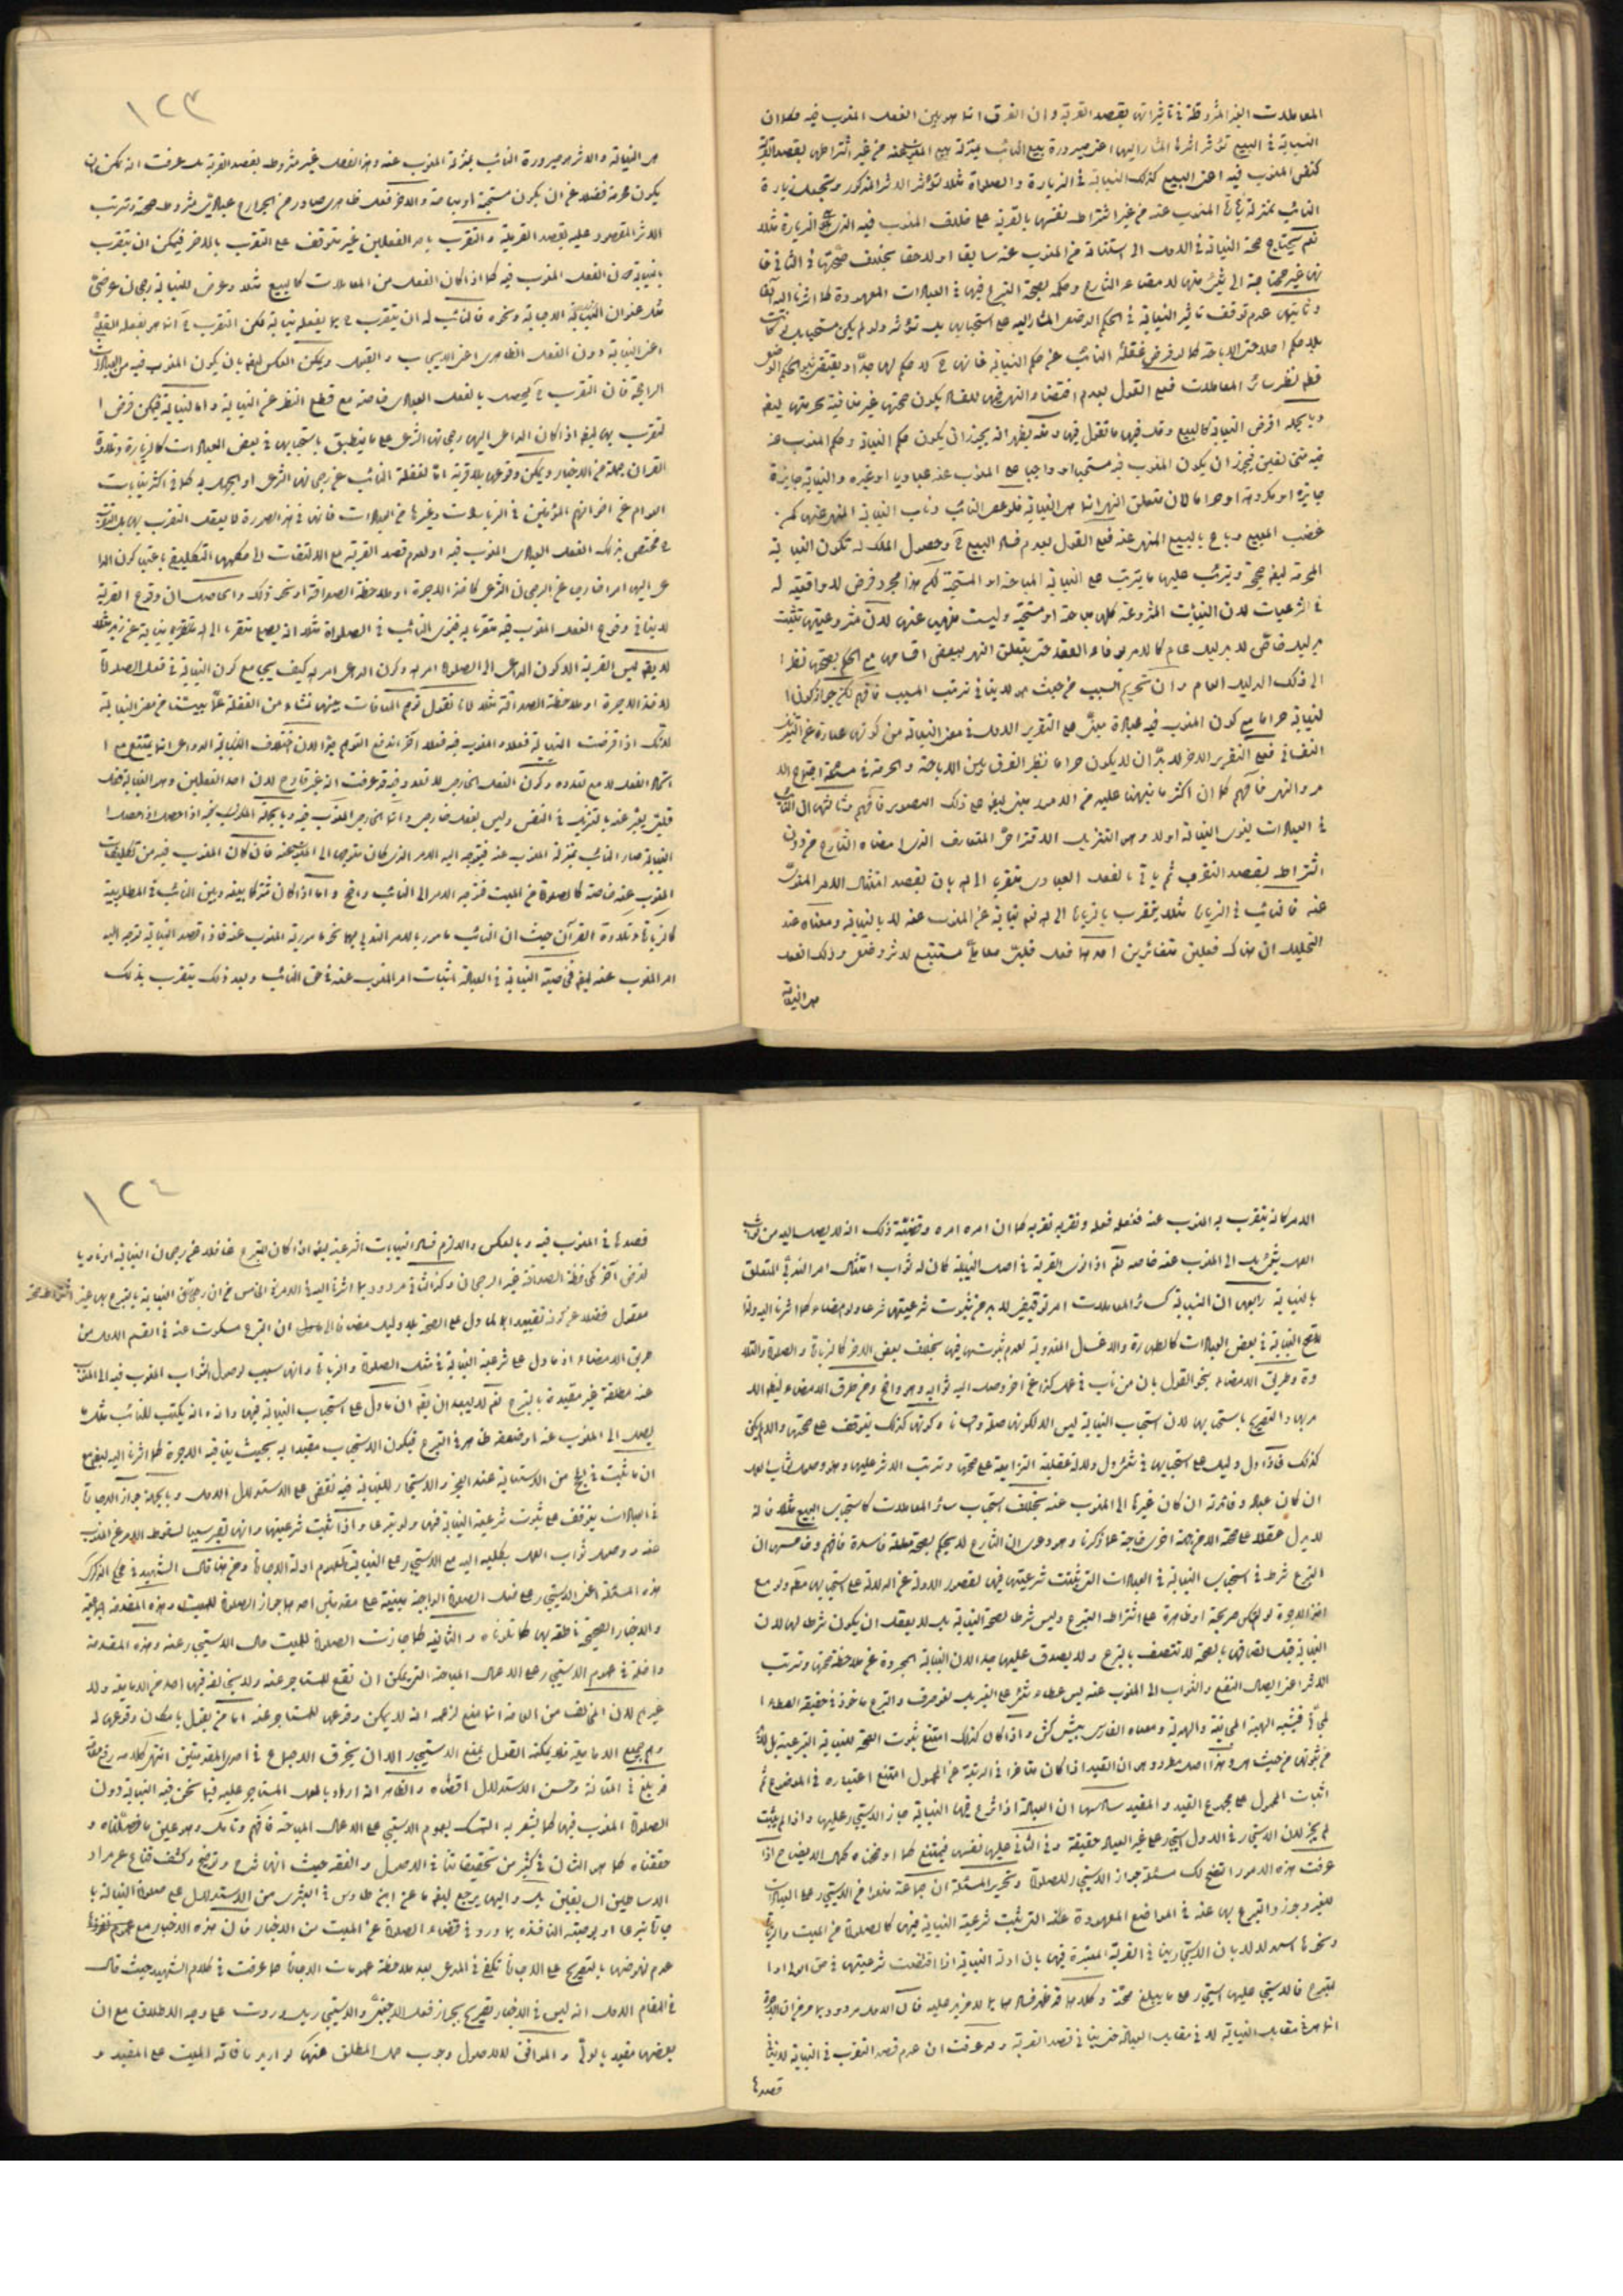 المعاملات الغير المشروطة في تأثيراتها بقصد القربة وان الفرق انما هو بين الفعل المنوب فيه فكما ان
النيابة في البيع تؤثر اثرها المشار اليه اعني صيرورة بيع النائب بمنزلة بيع المنوب عنه من غير اشتراطها بقصد القربة
كنفس المنوب فيه اعني البيع كذلك النيابة في الزيارة والصلاة مثلا تؤثر الاثر المذكور وتجعل زيارة
النائب بمنزلة زيارة المنوب عنه من غير اشتراط نفسها بالقربة على خلاف المنوب فيه الذي هو الزيارة مثلا
نعم يحتاج صحة النيابة في الاول الى استنابة من المنوب عنه سابقا او لاحقا بخلاف صحتها في الثاني فا
نها غير محتاجة الى شيء منها لامضاء الشارع وحكمه بصحة التبرع فيها في العبادات المعهودة كما اشرنا اليه آنفا
وثانيها عدم توقف تأثير النيابة في الحكم الوضعي المشار اليه على استحبابها بل تؤثر ولو لم يكن مستحبا بل لو كانت
بلا حكم اصلا حتى الاباحة كما لو فرض غفلة النائب عن حكم النيابة فانها ح لا حكم لها جدا
قطع نظر سائر المعاملات فمع القول بعدم اقتضاء النهي فيها للفساد يكون صحتها غير منافية لحرمتها ايضا
وبالجملة افرض النيابة كالبيع وقل فيها ما تقول فيه ومنه يظهر انه يجوز ان يكون حكم النيابة وحكم المنوب عنه
فيه متخالفين فيجوز ان يكون المنوب فيه مستحبا او واجبا على المنوب عنه عباديا او غيره والنيابة جايزة
جايزة او مكروهة او حراما لان متعلق النهي انما هو النيابة فلو عصى النائب وناب النيابة المنهي عنها كمن
غصب المبيع وباع بالبيع المنهي عنه فمع القول بعدم فساد البيع ح وحصول الملك له تكون النيابة
المحرمة ايضا صحيحة ويترتب عليها ما يترتب على النيابة المباحة او المستحبة لكن هذا مجرد فرض لا واقعية له
في الشرعيات لان النيابات المشروعة كلها مباحة او مستحبة وليست منهيا عنها لان مشروعيتها تثبت
بدليل خاص لا بدليل عام كالامر بوفاء العقد حتى يتعلق النهي ببعض اقسامها مع الحكم بصحتها نظرا
الى ذلك الدليل العام وان تحريم السبب من حيث هو لا ينافي ترتب المسبب فافهم لكن جواز كون ا
لنيابة حراما مع كون المنوب فيه عبادة مبني على التقرير الاول في معنى النيابة من كونها عبارة عن التنزيل
النفساني فعلى التقرير الاخر لا بد ان لا يكون حراما نظير الفرق بين الاباحة والحرمة في مسئلة اجتماع الا
مر والنهي فافهم كما ان اكثر ما نبهنا عليه من الامور مبني ايضا على ذلك التصوير فافهم وثالثها ان النائب
في العبادات ينوي النيابة اولا وهو التنزيل الاقتراحي المتعارف الذي امضاه الشارع من دون
اشتراط بقصد التقرب ثم يأتي بالفعل العبادي متقربا الى الله بان يقصد امتثال الامر المنوب
عنه فالنائب في الزيارة مثلا يتقرب بالزيارة الى الله نعم نيابة عن المنوب عنه لا بالنيابة ومعناه عند
التحليل ان هناك فعلين متغائرين احدهما فعل قلبي معاملي مستتبع لاثر وضعي وذلك الفعل
هو النيابة
١٢٣
هو النيابة والاثر هو صيرورة النائب بمنزلة المنوب عنه وهذا الفعل غير مشروط بقصد القربة بل عرفت انه يمكن ان
يكون محرمة فضلا عن ان يكون مستحبة او مباحة والاخر فعل ظاهري صادر من الجوارح عبادي مشروط صحته وترتب
الاثر المقصود عليه بقصد القربة والتقرب باحد الفعلين غير متوقف على التقرب بالاخر فيمكن ان يتقرب
بالنيابة دون الفعل المنوب فيه كما اذا كان الفعل من المعاملات كالبيع مثلا وعرض للنيابة رجحان عرضي
مثل عنوان الاجابة ونحوه فالنائب له ان يتقرب ح بما يفعله نيابة لكن التقرب ح انما هو بفعله القلبي
اعني النيابة دون الفعل الظاهري اعني الايجاب والقبول ويمكن العكس ايضا بان يكون المنوب فيه من العبادات
الراجحة فان التقرب ح يحصل بالفعل العبادي خاصة مع قطع النظر عن النيابة واما النيابة فيمكن فرض ا
لتقرب بها ايضا اذا كان الداعي اليها رجحانها الشرعي على ما ينطبق باستحبابها في بعض العبادات كالزيارة وتلاوة
القرآن جملة من الاخبار ويمكن وقوعها بلا قربة اما لغفلة النائب عن رجحانها الشرعي او الجهل به كما في اكثر نيابات
العوام عن اخوانهم المؤمنين في الزيارات وغيرها من العبادات فانها في هذه الصورة لا يعقل التقرب بها بل التقرب
ح مختص بذلك الفعل العبادي المنوب فيه او لعدم قصد القربة مع الالتفات الى حكمها التكليفي باعتبار كون الدا
عي اليها امرا خارجا عن الرجحان الشرعي كاخذ الاجرة او ملاحظة الصداقة او نحو ذلك والحاصل ان وقوع القربة
لا ينافي وقوع الفعل المنوب فيه متقربا به فينوي النائب في الصلاة مثلا انه يصلي متقربا الى الله نيابة عن زيد مثلا
لا يقال ليس القربة الا كون الداعي الى الصلاة امر الله وكون الداعي امر الله كيف يجامع كون النيابة في فعل الصلاة
لاخذ الاجرة او ملاحظة الصداقة مثلا لانا نقول توهم المنافات بينهما نشأ من الغفلة عما بينا من معنى النيابة
لانك اذا فرضت النيابة فعلا والمنوب فيه فعلا آخر اندفع التوهم جدا لان اختلاف الداعي انما يمتنع مع ا
تحاد الفعل لا مع تعدده وكون الفعل الخارجي لا تعدد فيه قد عرفت انه غير قادح لان احد الفعلين وهو النيابة فعل
قلبي يعبر عنه بالتنزيل في النفس وليس بفعل خارجي وانما الخارجي المنوب فيه وبالجملة
النيابة صار النائب بمنزلة المنوب عنه فيتوجه اليه الامر الذي كان متوجها الى المنوب عنه فان كان المنوب فيه من تكليفات
المنوب عنه خاصة كالصلوة من الميت فتوجه الامر الى النائب واضح واما اذا كان مشتركا بينه وبين النائب في المطلوبية
كالزيارة وتلاوة القرآن حيث ان النائب مأمور بالامر الندبي بهما نحو مأمورية المنوب عنه فاذا قصد النيابة توجه اليه
امر المنوب عنه ايضا فخاصية النيابة في العبادة اثبات امر المنوب عنه في حق النائب وبعد ذلك يتقرب بذلك
الامر كانه يتقرب به المنوب عنه ففعله فعله وتقربه تقربه كما ان امره امره وقضية ذلك انه لا يصل اليه من ثواب
العمل شيء بل الى المنوب عنه خاصة نعم اذا نوى القربة في اصل النيابة كان له ثواب امتثال امر الندبي المتعلق
بالنيابة رابعها ان النيابة كسائر المعاملات امر توقيفي لا بد من ثبوت شرعيتها شرعا ولو بامضاء كما اشرنا اليه ولذا
لا تصح النيابة في بعض العبادات كالطهارة والاغسال المندوبة لعدم ثبوتها فيها بخلاف بعض الاخر كالزيارة والصلاة والتلا
وة وطريق الامضاء بنحو القول بان من ناب في عمل كذا عن آخر وصل اليه ثوابه وهو واضح ومن طرق الامضاء ايضا الا
مر بها والتصريح باستحبابها لان استحباب النيابة ليس الا لكونها صلة واحسانا وكونها كذلك يتوقف على صحتها والا لم يكن
كذلك فاذا دل دليل على استحبابها في شيء دل دلالة عقلية التزامية على صحتها وترتب الاثر عليها وهو وصول ثواب العمل
ان كان عبادة وفائدته ان كان غيرها الى المنوب عنه بخلاف استحباب سائر المعاملات كاستحباب البيع مثلا فانه
لا يدل عقلا على صحة الا من جهة اخرى خارجة عما ذكرنا وهو دعوى ان الشارع لا يحكم بصحة معاملة فاسدة فافهم وخامسها ان
التبرع شرط في استحباب النيابة في العبادات التي تثبتت شرعيتها فيها لقصور الادلة عن الدلالة على استحبابها مطلقا ولو مع
اخذ الاجرة لو لم يكن صريحة او ظاهرة على اشتراط التبرع وليس شرطا لصحة النيابة بل لا يعقل ان يكون شرطا لها لان
النيابة قبل اتصافها بالصحة لا تتصف بالتبرع ولا يصدق عليها جدا لان النيابة المجردة عن ملاحظة صحتها وترتب
الاثر اعني ايصال النفع والثواب الى المنوب عنه ليس عطاء شيء على الغير بل لغو صرف والتبرع مأخوذ في حقيقة العطاء ا
لمجاني فيشبه الهبة المجانية والهدية ومعناه الفارسي پيش كش واذا كان كذلك امتنع ثبوت الصحة للنيابة التبرعية بل لا بد
من ثبوتها من حيث هو وهذا اصل مطرد وهو ان القيد اذا كان متأخرا في الرتبة عن المحمول امتنع اعتباره في الموضوع ثم
اثبات المحمول على مجموع القيد والمقيد سادسها ان العبادة اذا شرع فيها النيابة جاز الاستيجار عليها واذا لم يثبت
لم يجز لان الاستيجار في الاول استيجار على غير العبادة حقيقة وفي الثاني عليها نفسها فيمتنع كما اوضحناه كمال الايضاح اذا
عرفت هذه الامور اتضح لك مسئلة جواز الاستيجار للصلوة وتحرير المسئلة ان جماعة منعوا من الاستيجار على العبادات
للغير وجوزوا التبرع بها عنه في المواضع المعهودة التي ثبت شرعية النيابة فيها كالصلوة من الميت والزيارة
ونحوها استدلالا بان الاستيجار ينافي القربة المعتبرة فيها بان ادلة النيابة اذا اقتضت شرعيتها في حق الموالي
لتبرع فالاستيجار عليها استيجار على ما يبلغ صحته وكلاهما قد ظهر فساده بما لا مزيد عليه فان الاول مردود بما مر من ان الاجرة
انما هي في مقابل النيابة لا في مقابل العبادة حتى ينافي قصد القربة وقد عرفت ان عدم قصد التقرب في النيابة لا ينافي
قصدها
١٢٤
قصدها في المنوب فيه وبالعكس والا لزم فساد النيابات الشرعية ايضا اذا كان المتبرع غافلا عن رجحان النيابة او ناويا
لغرض آخر كملاحظة الصداقة غير الرجحان وكذا الثاني مردود بما اشرنا اليه في الامر الخامس من ان رجحان النيابة بالتبرع بها غير اشتراط صحتها
معقول فضلا عن كونه تقييدا لما دل على الصحة بلا دليل مضافا الى ان التبرع مسكوت عنه في القسم الاول من
طريق الامضاء اذ ما دل على شرعية النيابة في مثل الصلوة والزيارة وانها سبب لوصول الثواب المنوب فيه الى المنوب
عنه مطلقة غير مقيدة بالتبرع نعم لا يبعد ان يقال ان ما دل على استحباب النيابة فيها وانه يكتب للنائب مثل ما
يصل الى المنوب عنه او ضعفه ظاهر في التبرع فيكون الاستحباب مقيدا به بحيث ينافيه الاجرة كما اشرنا اليه ايضا مع
ان ما ثبت في الحج من الاستنابة عند العجز والاستيجار للنيابة فيه نقض على الاستدلال الاول وبالجملة جواز الاجارة
في العبادات يتوقف على ثبوت شرعية النيابة فيها ولو تبرعا واذا ثبت شرعيتها وانها تصير سببا لسقوط الامر عن المنوب
عنه ووصول ثواب العمل بكليه اليه صح الاستيجار على النيابة لعموم ادلة الاجارة ومن هنا قال الشهيد في محكي الذكرى
هذه المسئلة اعني الاستيجار على فعل الصلوة الواجبة مبنية على مقدمتين احدهما جواز الصلوة للميت وهذه المقدمة اجماعية
والاخبار الصحيحة ناطقة بها كما تلوناه والثانية كلما جازت الصلوة للميت جاز الاستيجار عنه وهذه المقدمة
داخلة في عموم الاستيجار على الاعمال المباحة التي يمكن ان تقع للمستاجر عنه ولا يخالف فيها احد من الامامية ولا
غيرهم لان المخالف من العامة انما منع لزعمه انه لا يمكن وقوعها للمستاجر عنه اما من يقول بامكان وقوعها له
وهم جميع الامامية فلا يمكنه القول بمنع الاستيجار الا ان يخرق الاجماع في احدى المقدمتين انتهى كلامه رفع مقامه
فبلغ في المتانة وحسن الاستدلال اقصاه والظاهر انه اراد بالعمل المستاجر عليه فيما نحن فيه النيابة دون
الصلوة المنوب فيها كما يشعر به التمسك بعموم الاستيجار على الاعمال المباحة فافهم وتأمل وهو عين ما فصلناه و
حققناه كما هو الشأن في كثير من تحقيقاتنا في الاصول والفقه حيث انها شرح وتوضيح وكشف قناع عن مراد
الاساطين السابقين بل واليه يرجع ايضا ما عن ابن طاوس في البشرى من الاستدلال على صلوة النيابة با
جارة تبرعا او بوصيته النافذة بما ورد في قضاء الصلوة عن الميت من الاخبار فان هذه الاخبار مع
عدم نهوضها بالتصريح على الاجارة تكفي في المدعى بعد ملاحظة عمومات الاجارة كما عرفت في كلام الشهيد حيث قال
في المقام الاول انه ليس في الاخبار تصريح بجواز فعل الاجنبي والاستيجار بل وردت على وجه الاطلاق مع ان
بعضها مقيد بالولي والموافق للاصول وجوب حمل المطلق عنها لو اريد بها فائتة الميت على المقيد و